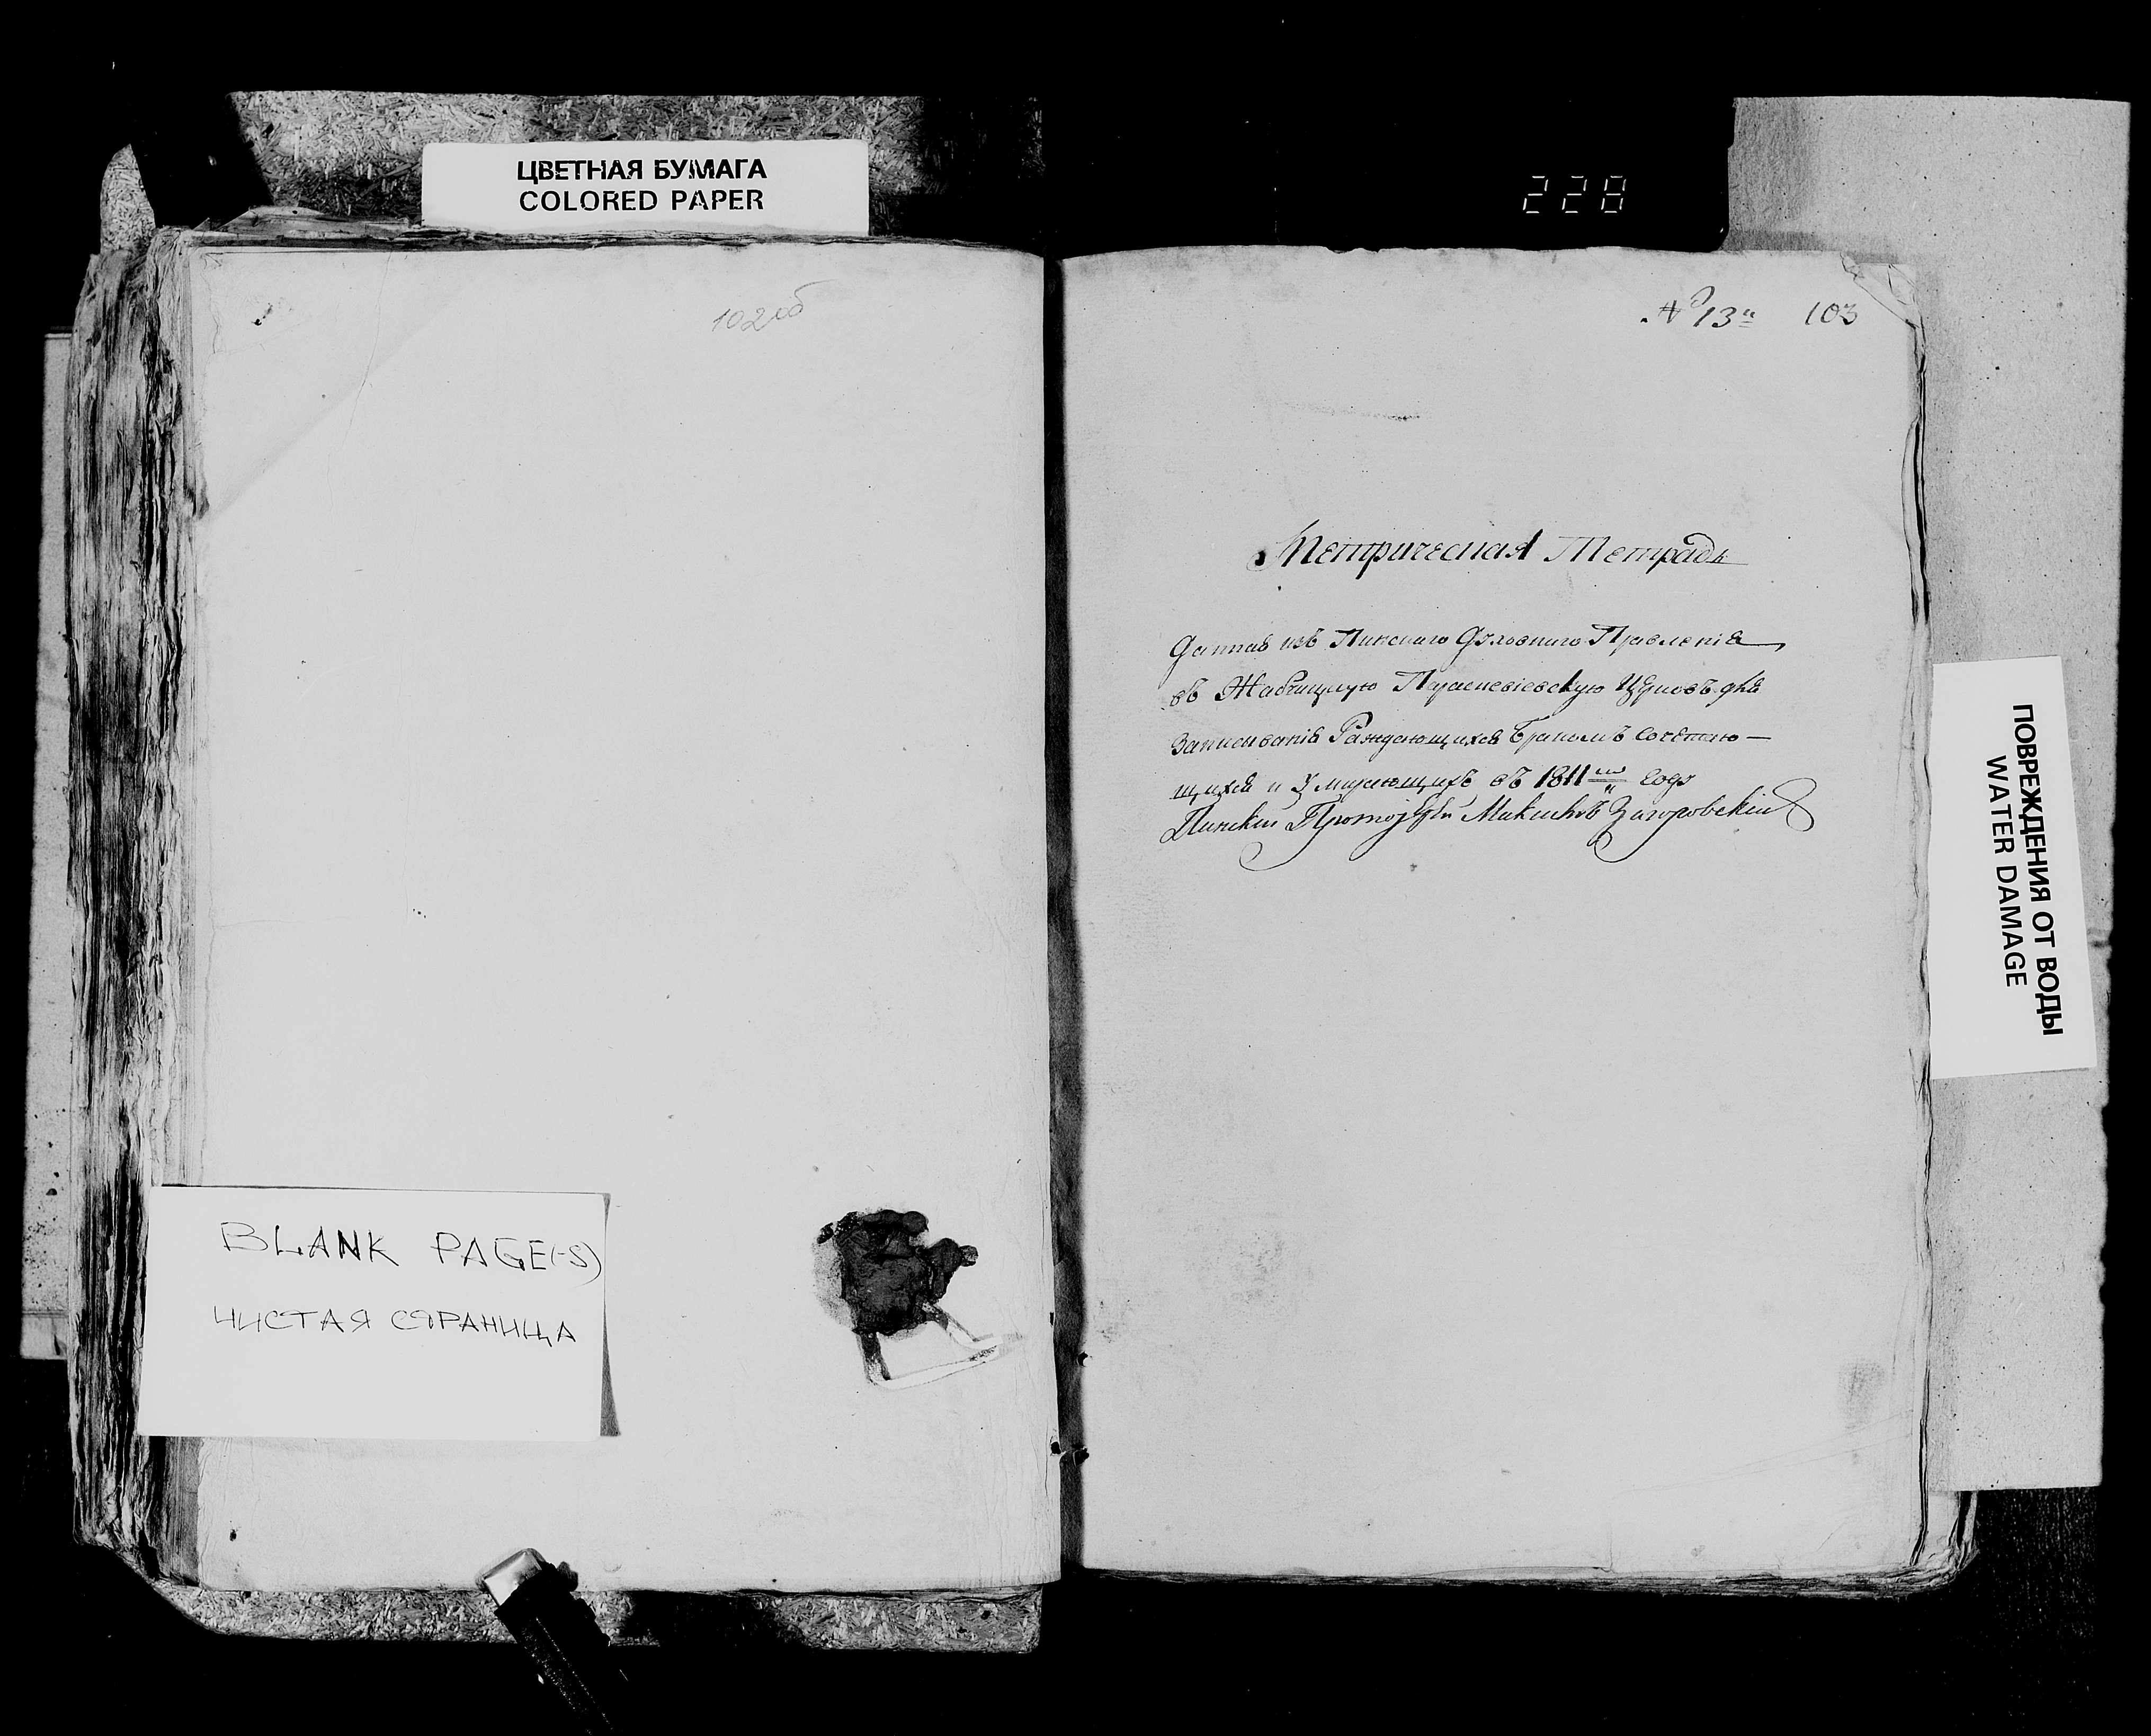 ЦВЕТНАЯ БУМАГА
COLORED PAPER
228
102об
№ 13й 103
Метрическая Тетрадь
Данная изъ Пинскаго Духовнаго Правленія
въ Жабчицкую Параскевіевскую Церковъ для
Записыванія Раждающихся Бракомъ сочетаю-
щихся и Умирающихъ въ 1811м году
Пинскій Протоіерей Загоровскій
ПОВРЕЖДЕНИЯ ОТ ВОДЫ
WATER DAMAGE
BLANK PAGE(-S)
ЧИСТАЯ СТРАНИЦА